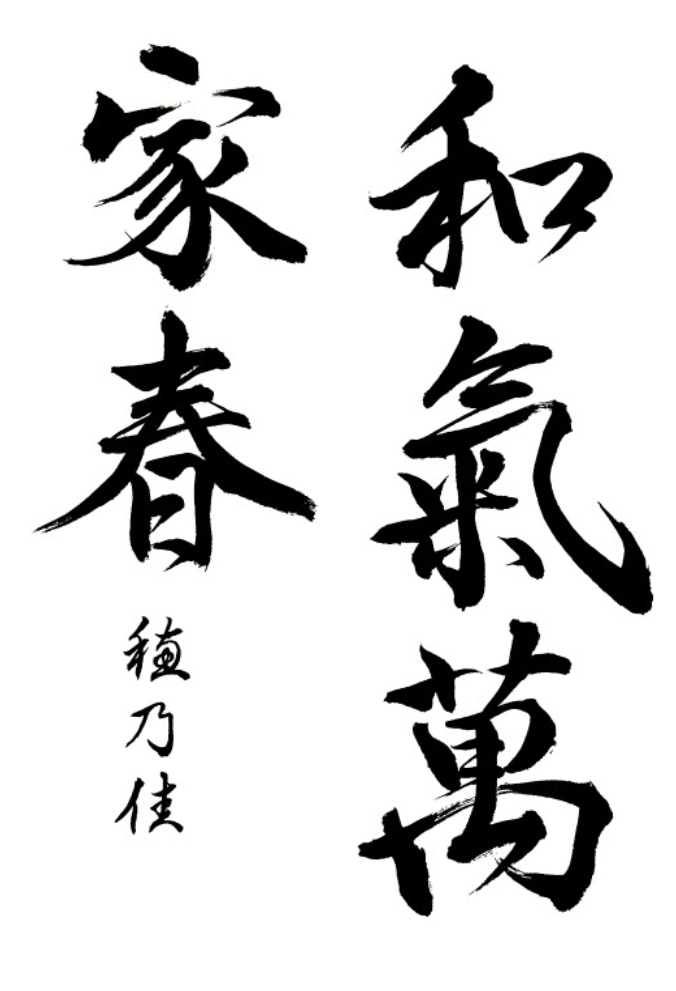 和氣萬
家春
穂乃佳